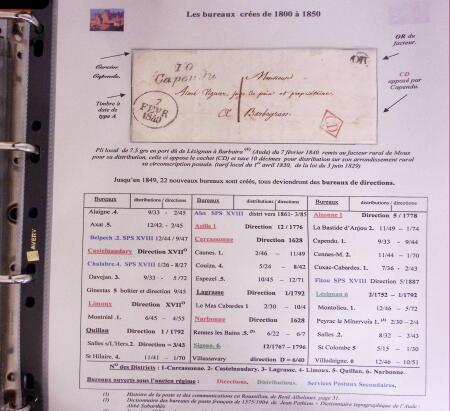 Les bureaux crées de 1800 à 1850
OR du
facteur.
Cursive
Capendu.
10
Capendu
OR
Monsieur
CD
apposé par
Capendu
Timbre à
date de
type A
7
FEVR
1840
CD
Pli local de 7.5 grs en port dû de Lézignan à Barbaira (4) (Aude) du 7 février 1840 remis au facteur rural de Moux
pour sa distribution, celle ci appose le cachet (CD) et taxe 10 décimes pour distribution sur son arrondissement rural
sa circonscription postale (tarif local du 1er avril 1830, de la loi du 3 juin 1829)
Jusqu'en 1849, 22 nouveaux bureaux sont crées, tous deviendront des bureaux de directions.
Bureaux distributions / directions Bureaux distributions / directions Bureaux distributions / directions
Alaigne .4. 9/33 - 2/45 Alet SPS XVIII distri vers 1861- 3/85 Alzonne 1 Direction 5 / 1778
Axat .5. 12/42. - 2/45 Azille 1 Direction 12 / 1776 La Bastide d'Anjou 2. 11/49 - 1/74
Belpech .2. SPS XVIII 12/44 / 9/47 Carcassonne Direction 1628 Capendu. 1. 9/33 - 9/44
Castelnaudary Direction XVII° Caunes. 1. 2/46 - 11/49 Cennes-M. 2. 11/44 - 1/70
Chalabre.4. SPS XVIII 1/26 - 8/27 Couiza. 4. 5/24 - 8/42 Cuxac-Cabardes. 1. 7/36 - 2/43
Davejan. 3. 9/33 - 5 /72 Espezel .5. 10/45 - 12/71 Fitou SPS XVIII Direction 5/1887
Ginestas 5 boitier et direction 9/45 Lagrasse Direction 1/1792 Lézignan 6 2/1752 – 1/1792
Limoux Direction XVII° Le Mas Cabardes 1 2/30 - 10/4 Montolieu. 1. 12/46 - 5/72
Montréal .1. 6/45 - 4/55 Narbonne Direction 1628 Peyrac le Minervois 1. 2/30 – 2/4
Quillan Direction 1 / 1792 Rennes les Bains .5. 6/22 - 6/7 Salles .2. 8/32 - 3/43
Salles s/l,Hers.2. Direction – 3/43 Sigean. 6. 12/1767 – 1796 St Colombe 5 5/15 - 1/30
St Hilaire. 4. 11/41 - 1/70 Villasavary direction D – 6/40 Villedaigne. 6 12/46 - 10/51
N° des Districts : 1-Carcassonne. 2- Castelnaudary, 3- Lagrasse, 4- Limoux. 5- Quillan. 6- Narbonne.
Bureaux ouverts sous l'ancien régime : Directions, Distributions. Services Postaux Secondaires.
(1) Histoire de la poste et des communications en Roussillon, de René Albelouer, page 31.
(2) Dictionnaire des bureaux de poste français de 1575-1904. de Jean Pothion – Dictionnaire topographique de l'Aude :
Abbé Sabarthès
AVERY